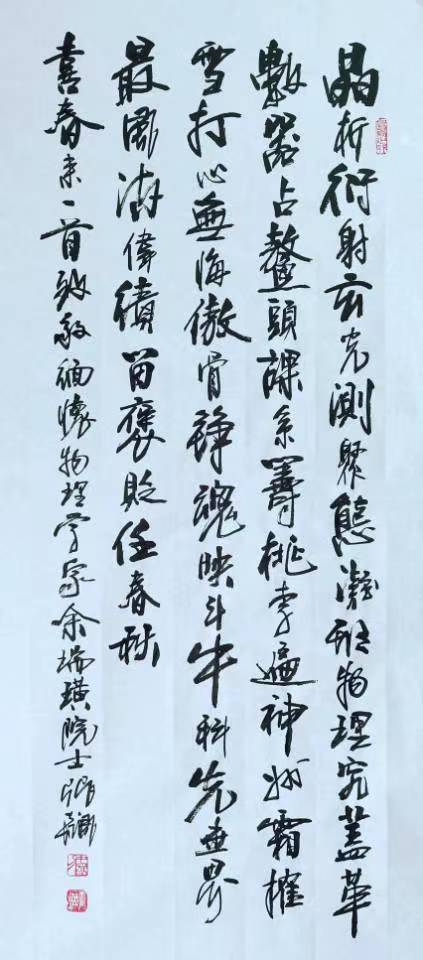 晶析衍射玄光测聚態凝班物理究蓋革
數器占鰲頭課系籌桃李遍神州霜摧
雪打心無悔傲骨錚魂映斗牛科先世界
最風流偉績留褒貶任春秋
喜春来一首致敬緬懷物理学家余瑞璜院士